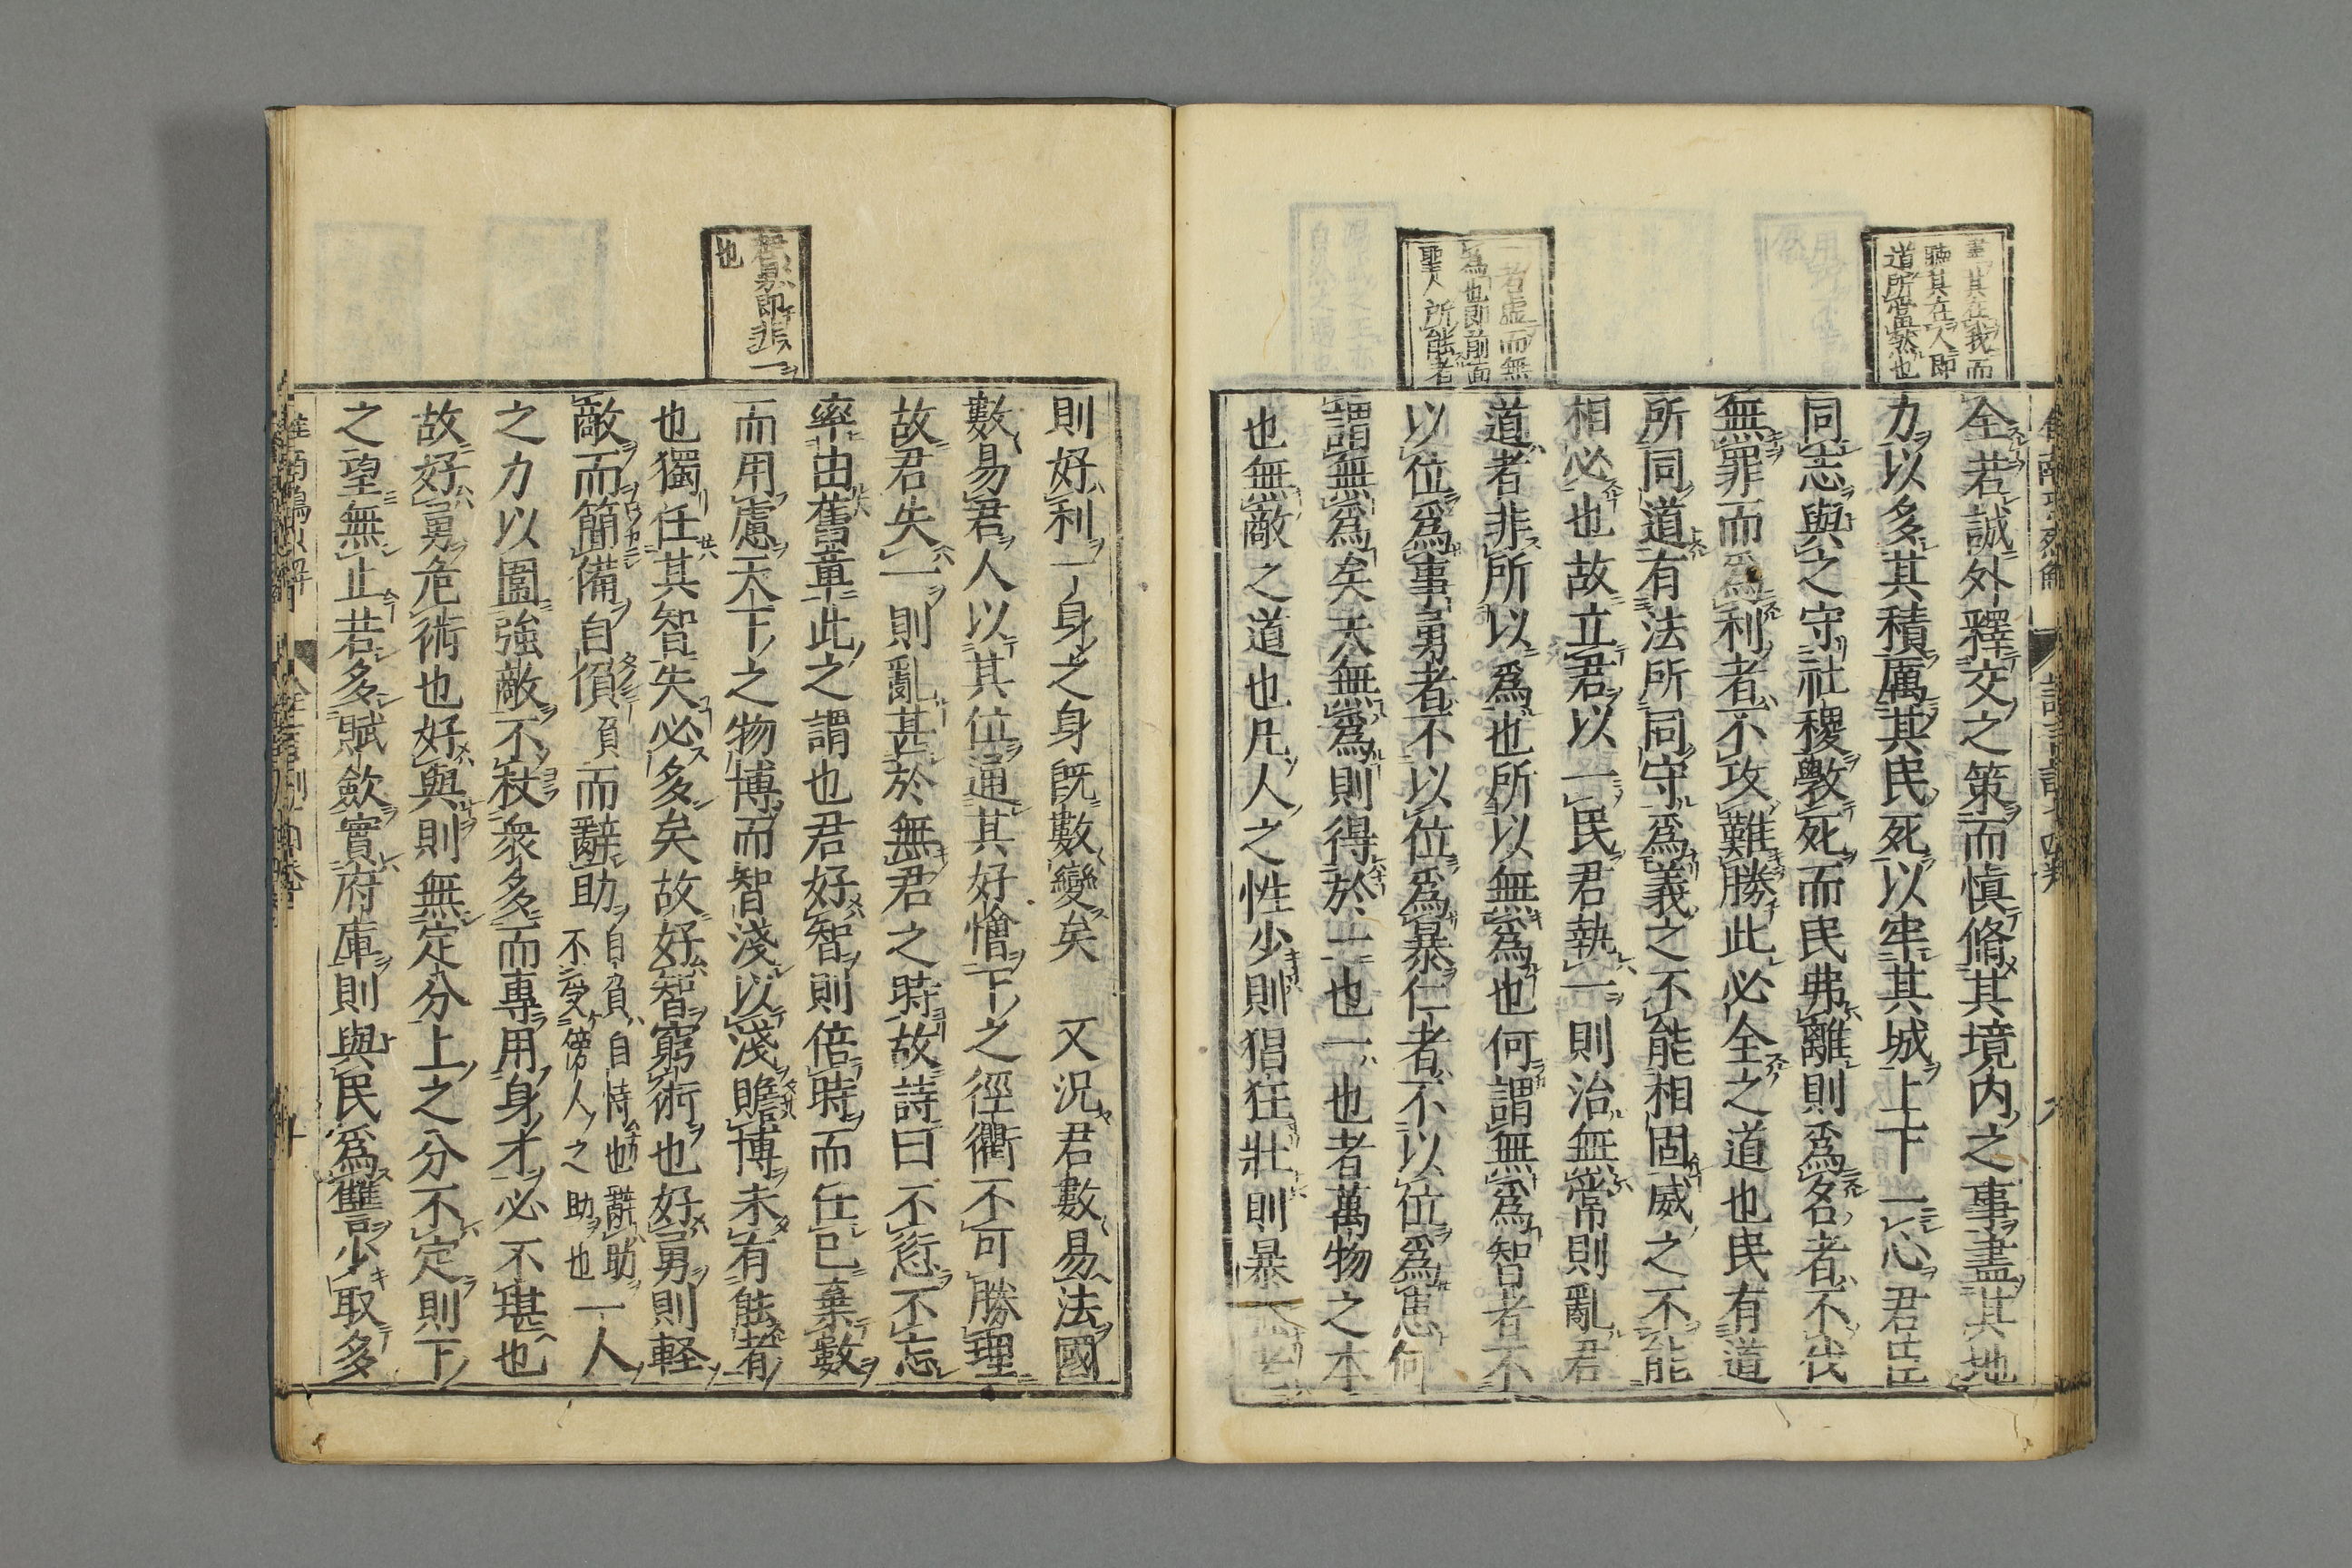 盡其在我而
聽其在人即
道所當然也
一者虛而無
爲也即前面
聖人所能者
全若誠外釋交之策而愼脩其境内之事盡其地
力以多其積厲其民死以牢其城上下一心君臣
同志與之守社稷斆死而民弗離則爲名者不伐
無罪而爲利者不攻難勝此必全之道也民有道
所同道有法所同守爲義之不能相固威之不能
相必也故立君以一民君執一則治無常則亂君
道者非所以爲也所以無爲也何謂無爲智者不
以位爲事勇者不以位爲暴仁者不以位爲患何
謂無爲矣夫無爲則得於一也一也者萬物之本
也無敵之道也凡人之性少則猖狂壯則暴
君數即非一
也
則好利一身之身既數變矣又況君數易法國
數易君人以其位通其好憎下之徑衢不可勝理
故君失一則亂甚於無君之時故詩曰不愆不忘
率由舊章此之謂也君好智則倍時而任已棄數
而用慮天下之物博而智淺以淺贍博未有能者
也獨任其智失必多矣故好智窮術也好勇則輕
敵而簡備自偩負也而辭助自負自恃也辭助不受傍人之助也一人
之力以圉強敵不杖衆多而專用身才必不堪也
故好勇危術也好與則無定分上之分不定則下
之望無止若多賦歛實府庫則與民爲讐少取多
淮南鴻烈解